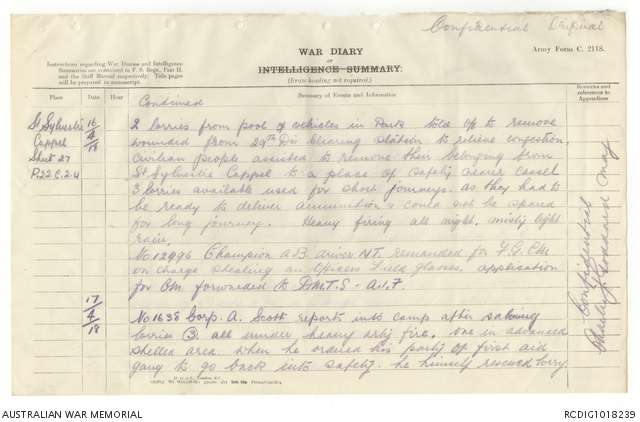 Confidential Original
Army Form C. 2118.
WAR DIARY
OR
INTELLIGENCE SUMMARY.
(Erase heading not required.)
Instructions regarding War Diaries and Intelligence
Summaries are contained in F. S. Regs., Part II.
and the Staff Manual respectively. Title pages
will be prepared in manuscript.
Place Date Hour Summary of Events and Information Remarks and references to Appendices
Continued
St Sylvestre 16/4/18 2 lorries from pool of vehicles in Park told off to remove
Cappel wounded from 29th Div Clearing Station to relieve congestion.
Sheet 27 Civilian people assisted to remove their belonging from
P.22.C.2.4 St Sylvestre Cappel to a place of safety nearer Cassel
3 lorries available used for short journeys. as they had to
be ready to deliver ammunition & could not be spared
for long journey. Heavy firing all night. misty light
rain.
No 12996 Champion A.B. driver M.T. remanded for F.G.C.M.
on charge stealing an Officers Field glasses. application
for C.M. forwarded to D.M.T.S - A.I.F
17/4/18 No 1638 Corp. A. Scott reports into camp after salving
lorries (3) all under heavy arty fire. one in advanced
shelled area. when he ordered his party of first aid
gang to go back into safety. he himself rescued lorry
Confidential
AUSTRALIAN WAR MEMORIAL
RCDIG1018239